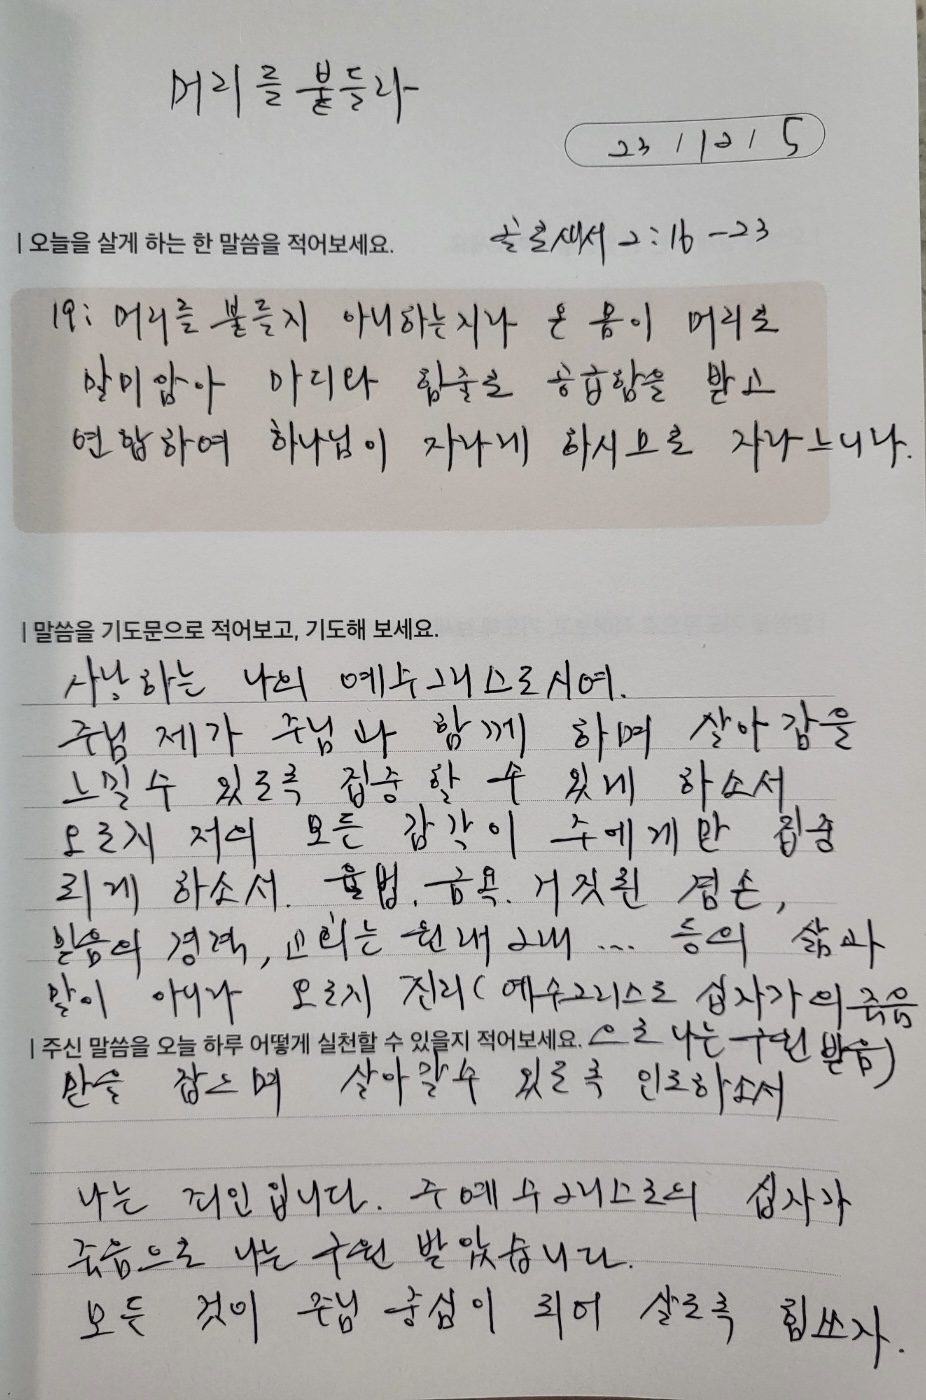 머리를 붙들라
23 / 12 / 5
| 오늘을 살게 하는 한 말씀을 적어보세요.
골로새서 2:16-23
19: 머리를 붙들지 아니하는지라 온 몸이 머리로
말미암아 마디와 힘줄로 공급함을 받고
연합하여 하나님이 자라게 하시므로 자라느니라.
| 말씀을 기도문으로 적어보고, 기도해 보세요.
사랑하는 나의 예수그리스도시여.
주님 제가 주님과 함께 하며 살아감을
느낄 수 있도록 집중할 수 있게 하소서
오로지 저의 모든 감각이 주에게만 집중
되게 하소서. 율법, 금욕, 거짓된 겸손,
믿음의 경력, 교회는 원래 그래 ... 등의 삶과
말이 아니라 오로지 진리(예수그리스도 십자가의 죽음
으로 나는 구원 받음)
| 주신 말씀을 오늘 하루 어떻게 실천할 수 있을지 적어보세요.
만을 잡으며 살아갈 수 있도록 인도하소서
나는 죄인입니다. 주 예수그리스도의 십자가
죽음으로 나는 구원 받았습니다.
모든 것이 주님 중심이 되어 살도록 힘쓰자.